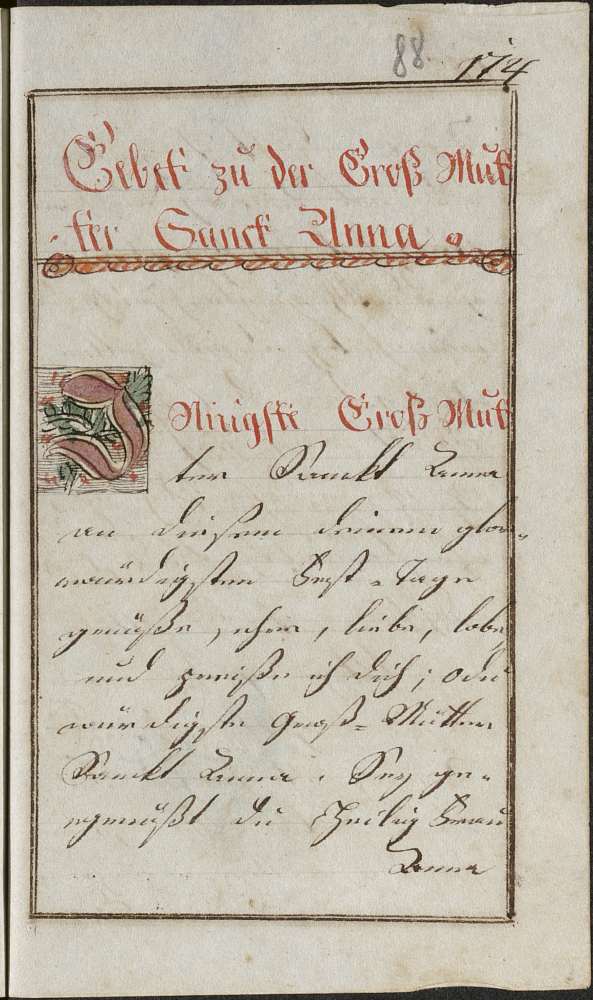 88. 174
Gebet zu der Groß Mut
ter Sanct Anna.
Innigste Groß Mut
ter Sanckt Anna
an diesem deinem glor=
würdigsten Fest=Tage
grüße, ehre, liebe, lobe,
und preiße ich dich; o du
würdigste Groß=Mutter
Sanckt Anna. Sey ge=
grüßt du Heilig Frau
Anna